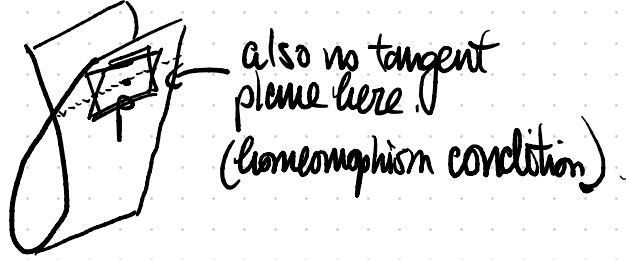 also no tangent
plane here.
(homeomophism condition).